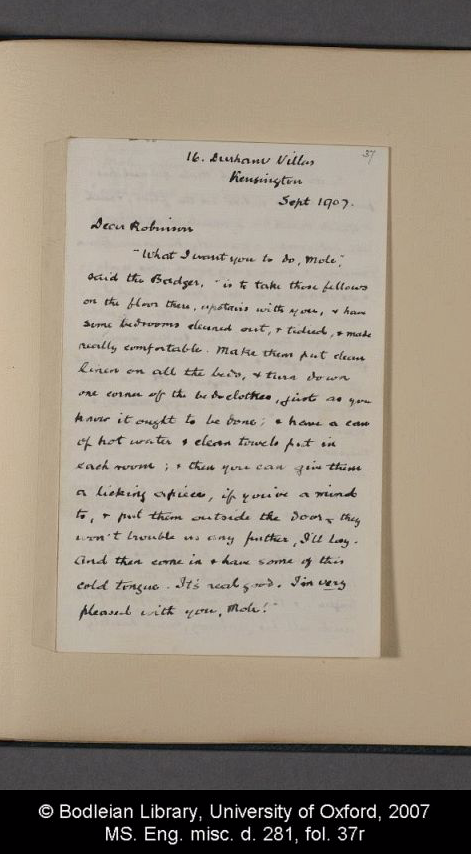 37
16. Durham Villas
Kensington
Sept 1907.
Dear Robinson
"What I want you to do, Mole,"
said the Badger, "is to take those fellows
on the floor there, upstairs with you, & have
some bedrooms cleaned out, & tidied, & made
really comfortable. Make them put clean
linen on all the beds, & turn down
one corner of the bedclothes, just as you
know it ought to be done; & have a can
of hot water & clean towels put in
each room; & then you can give them
a licking apiece, if you've a mind
to, & put them outside the door & they
won't trouble us any further, I'll lay.
And then come in & have some of this
cold tongue. It's real good. I'm very
pleased with you, Mole!"
© Bodleian Library, University of Oxford, 2007
MS. Eng. misc. d. 281, fol. 37r